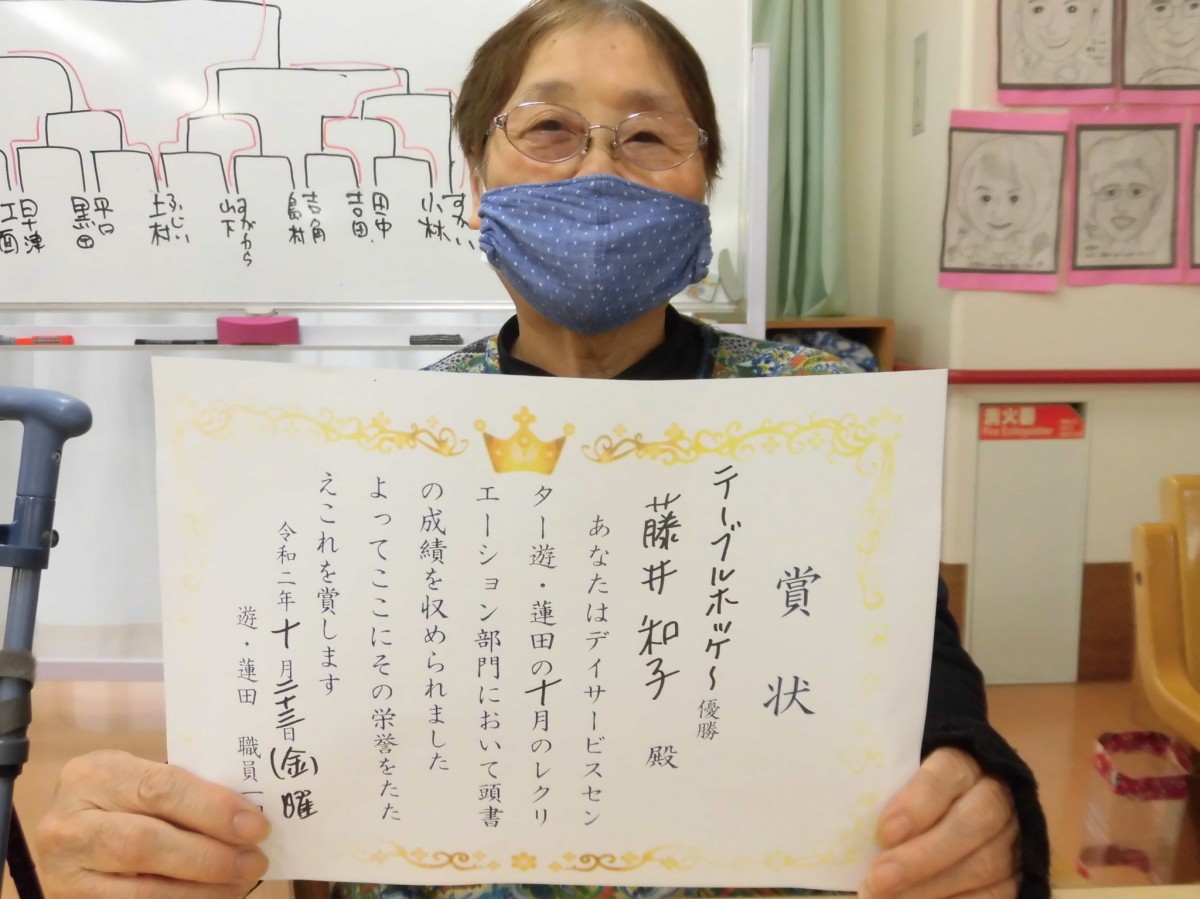 賞状
テーブルホッケー優勝
藤井知子 殿
あなたはデイサービスセン
ター遊・蓮田の十月のレクリ
エーション部門において頭書
の成績を収められました
よってここにその栄誉をたた
えこれを賞します
令和二年十月二十三日(金)曜
遊・蓮田 職員一
小林
田中
吉田
吉角
島村
すがわら
山下
ふじい
土村
平口
黒田
早津
消火器
Fire Extinguisher